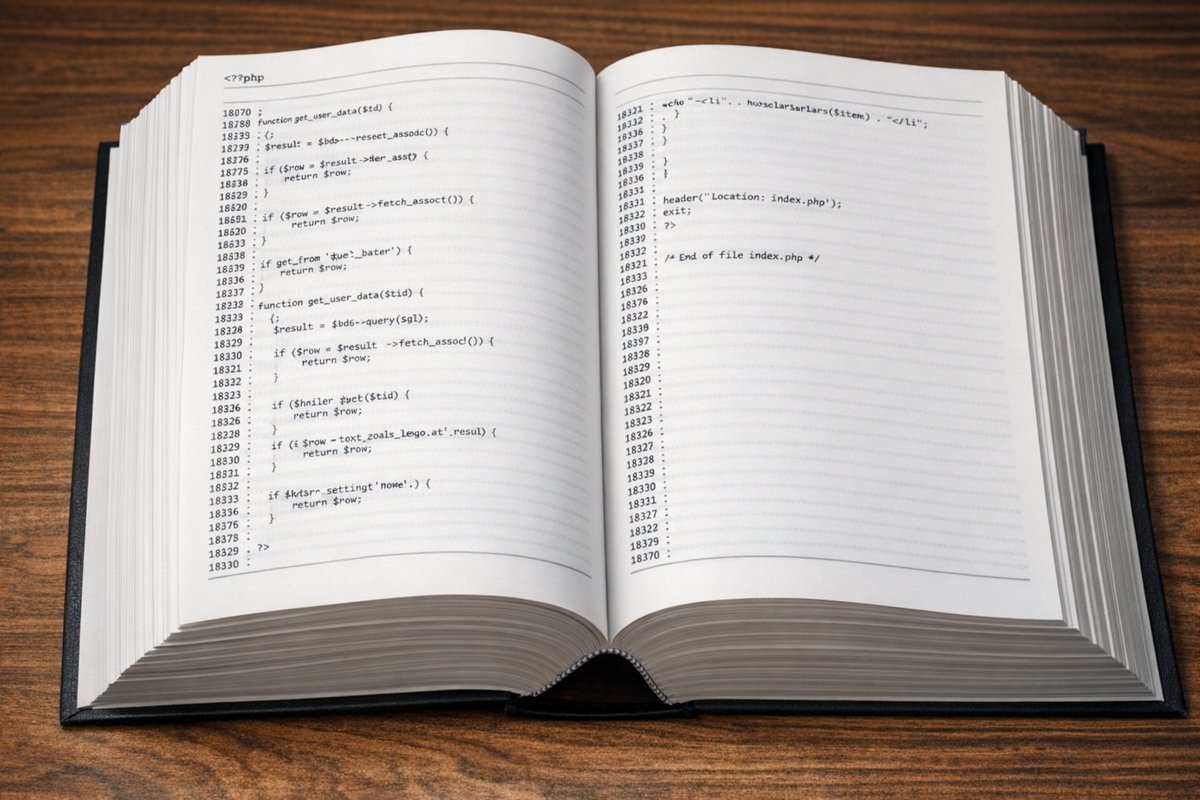 <??php
18070 :
18788 function get_user_data($td) {
18339 : {;
18293 : $result = $bdb---resect_assodc()) {
18276 :
18275 : if ($row = $result ->der_asst) {
18838 : return $row;
18829 : }
18820 :
18681 : if ($row = $result ->fetch_assoct()) {
18620 : return $row;
18633 : }
18538 :
18339 : if get_from _bater') {
18336 : return $row;
18237 : }
18238 : function get_user_data($tid) {
18323 : {;
18328 : $result = $bd6-->query(sgl);
18329 :
18330 : if ($row = $result ->fetch_assoc()) {
18321 : return $row;
18322 : }
18323 :
18326 : if ($hniler ($tid) {
18326 : return $row;
18228 : }
18329 : if ( $row - toxt_zoals_lego.at'.resul) {
18330 : return $row;
18321 : }
18332 :
18333 : if settingt'none'.) {
18336 : return $row;
18376 : }
18378 :
18329 : ?>
18330 :
18321 : echo "-<li". . ($item) . "</li";
18332 : }
18336 : }
18337 : }
18338 :
18339 : }
18336 : }
18331 :
18331 : header("Location: index.php');
18322 : exit;
18330 : ?>
18339 :
18332 : /* End of file index.php */
18321 :
18333 :
18326 :
18376 :
18322 :
18339 :
18397 :
18328 :
18329 :
18320 :
18321 :
18322 :
18323 :
18326 :
18327 :
18328 :
18329 :
18330 :
18331 :
18327 :
18322 :
18329 :
18370 :